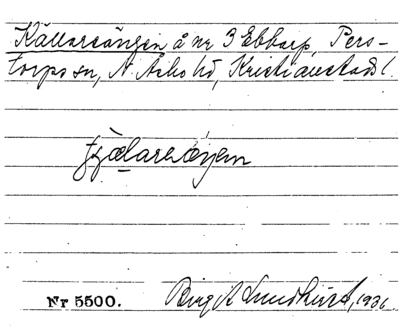 Källareängen å nr 3 Ebbarp, Pers-
torps sn, N. Åsbo hd, Kristianstads l.
Nr 5500. Birgit Lundhurst, 1931.